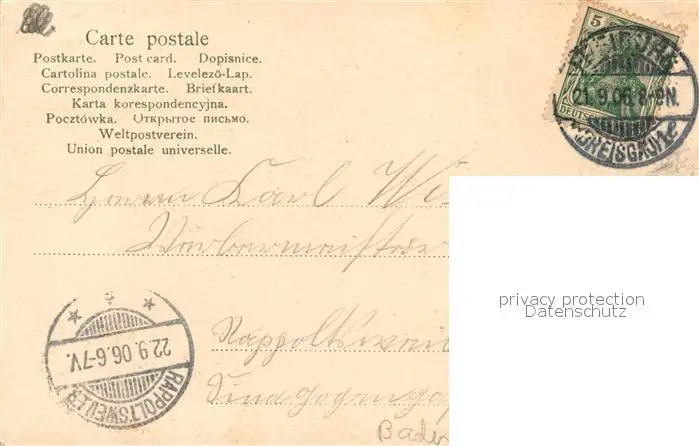 Carte postale
Postkarte. Post card. Dopisnice.
Cartolina postale. Levelező-Lap.
Correspondenzkarte. Briefkaart.
Karta korespondencyjna.
Pocztówka. Открытое письмо.
Weltpostverein.
Union postale universelle.
5
21.9.06.8-9N.
(BREISGAU)
Herrn Karl
Rappoltsweil
22.9.06.6-7V.
RAPPOLTSWEILER
Baden
privacy protection
Datenschutz